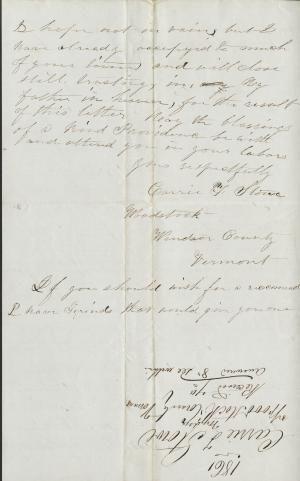 I hope not in vain, but I
have already occupyed to much
of your time, and will close
still trusting, in my
father in heaven, for the result
of this letter. May the blessings
of a kind Providence be with
and attend you in your labors
yours respectfully
Carrie F Stowe
Woodstock
Windsor County
Vermont
If you should wish for a recomend
I have friends that would give you one
1861
Carrie F Stowe
Woodstock Windsor County
Received
Answered